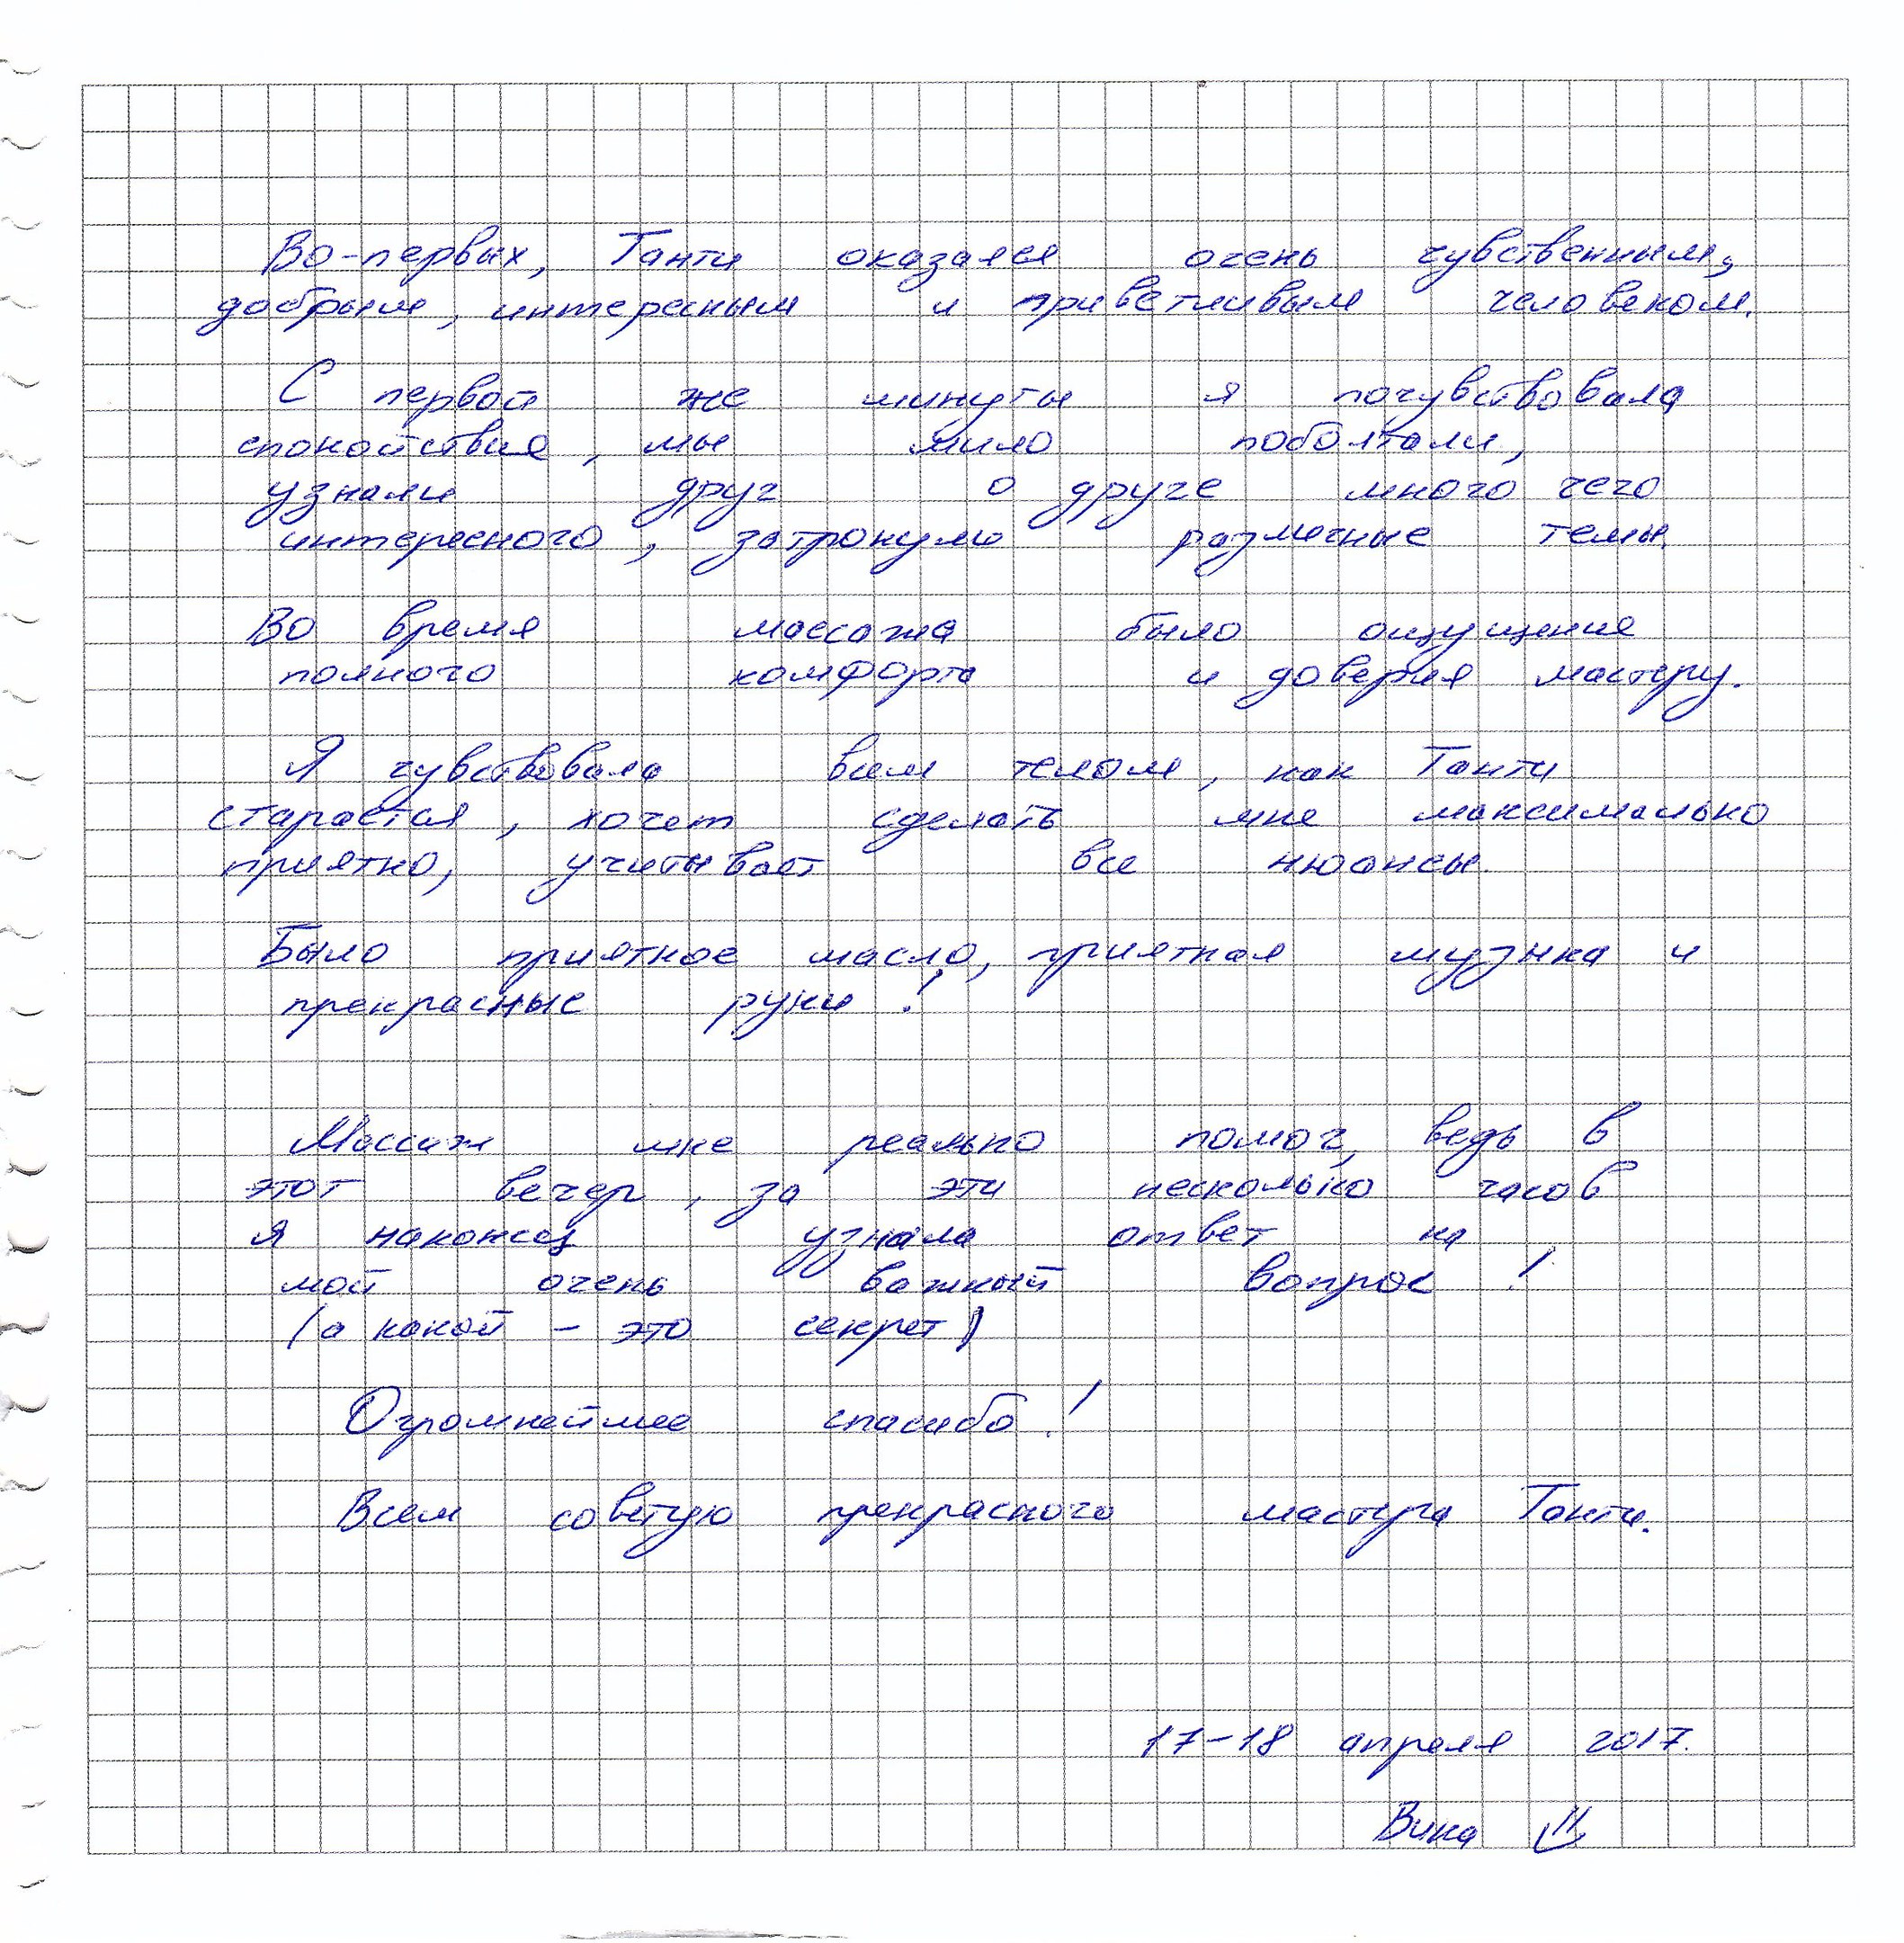 Во-первых, Танти оказался очень чувственным,
добрым, интересным и приветливым человеком.
С первой же минуты я почувствовала
спокойствие, мы мило поболтали,
узнали друг о друге много чего
интересного, затронули различные темы.
Во время массажа было ощущение
полного комфорта и доверия мастеру.
Я чувствовала всем телом, как Танти
старается, хочет сделать мне максимально
приятно, учитывает все нюансы.
Было приятное масло, приятная музыка и
прекрасные руки!
Массаж мне реально помог, ведь в
этот вечер, за эти несколько часов
я наконец узнала ответ на
мой очень важный вопрос!
(а какой - это секрет)
Огромнейшее спасибо!
Всем советую прекрасного мастера Танти.
17-18 апреля 2017.
Вика